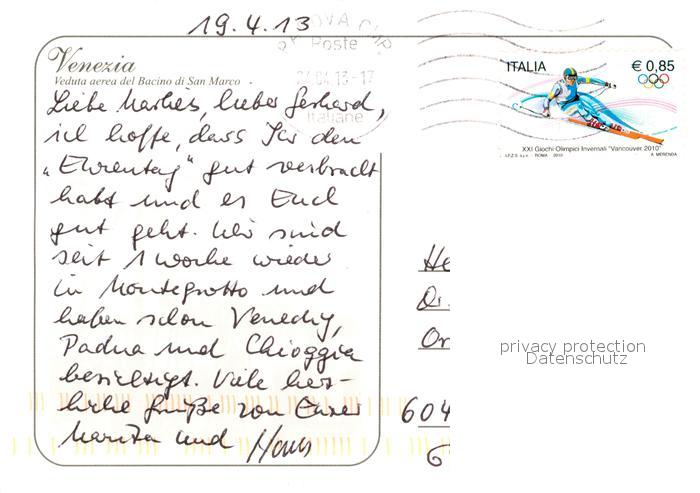 19.4.13
PADOVA CMP
Poste
24.04.13-17
Italiane
ITALIA
€ 0,85
XXI Giochi Olimpici Invernali "Vancouver 2010"
I.P.Z.S. S.p.A. - ROMA 2010
A. MERENDA
Venezia
Veduta aerea del Bacino di San Marco
Liebe Marlies, lieber Gerhard,
ich hoffe, dass Ihr den
„Ehrentag" gut verbracht
habt und es Euch
gut geht. Wir sind
seit 1 Woche wieder
in Montegrotto und
haben schon Venedig,
Padua und Chioggia
besichtigt. Viele herz-
liche Grüße von Eurer
Marita und Hans
He
Dr.
604
6
privacy protection
Datenschutz